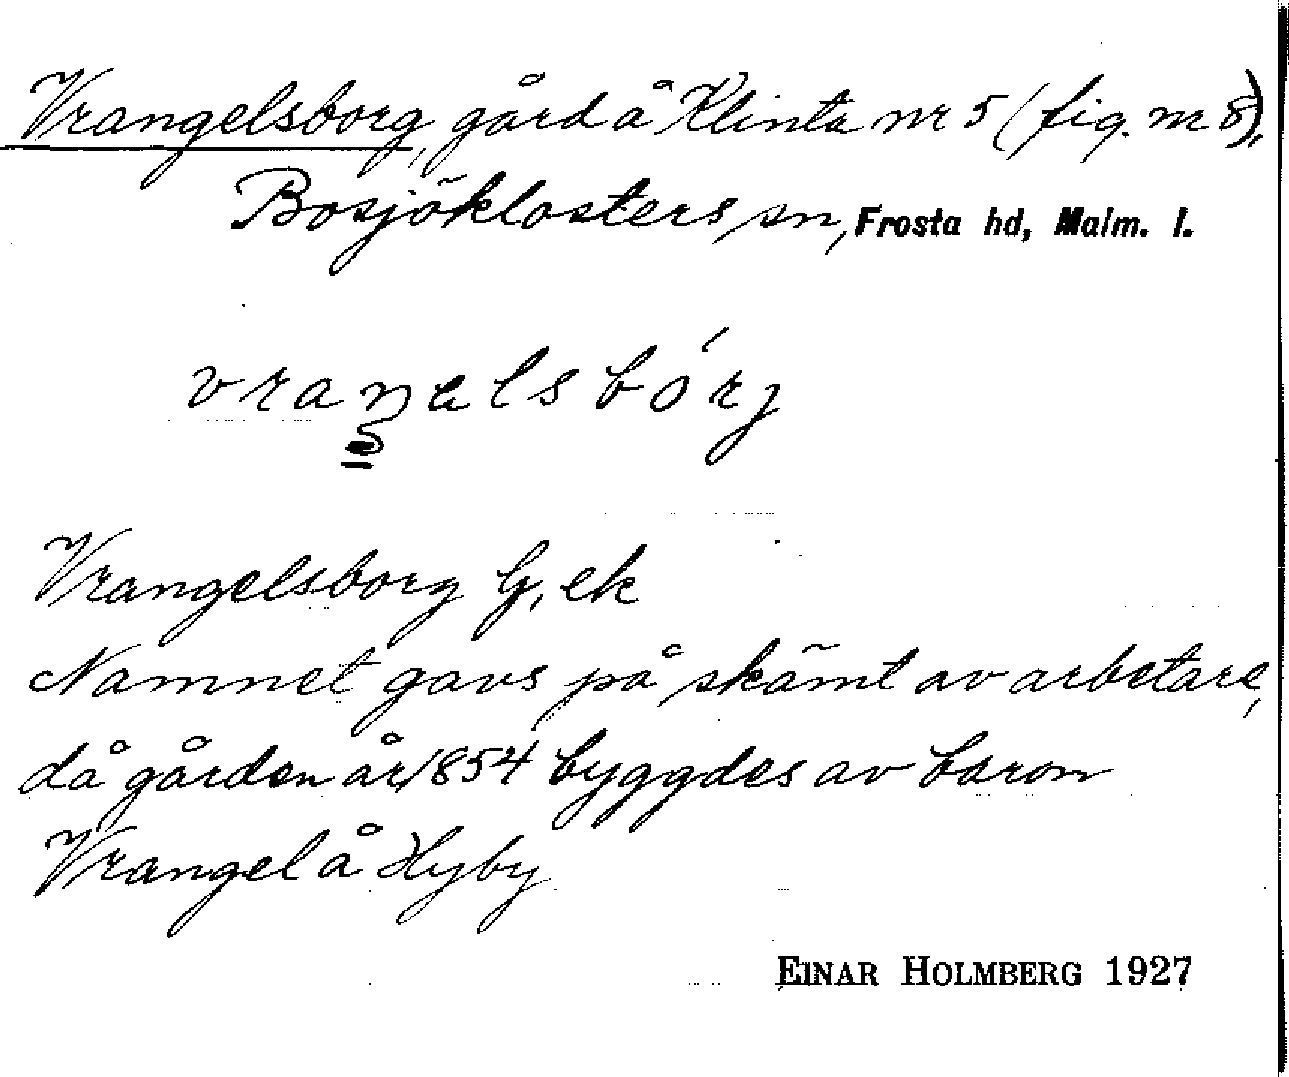 Vrangelsborg, gård å Klinta nr 5 (fig. nr 8),
Bosjöklosters sn, Frosta hd, Malm. l.
vraŋəlsbórj
Vrangelsborg G, ek
Namnet gavs på skämt av arbetare,
då gården år 1854 byggdes av baron
Vrangel å Hyby
EINAR HOLMBERG 1927